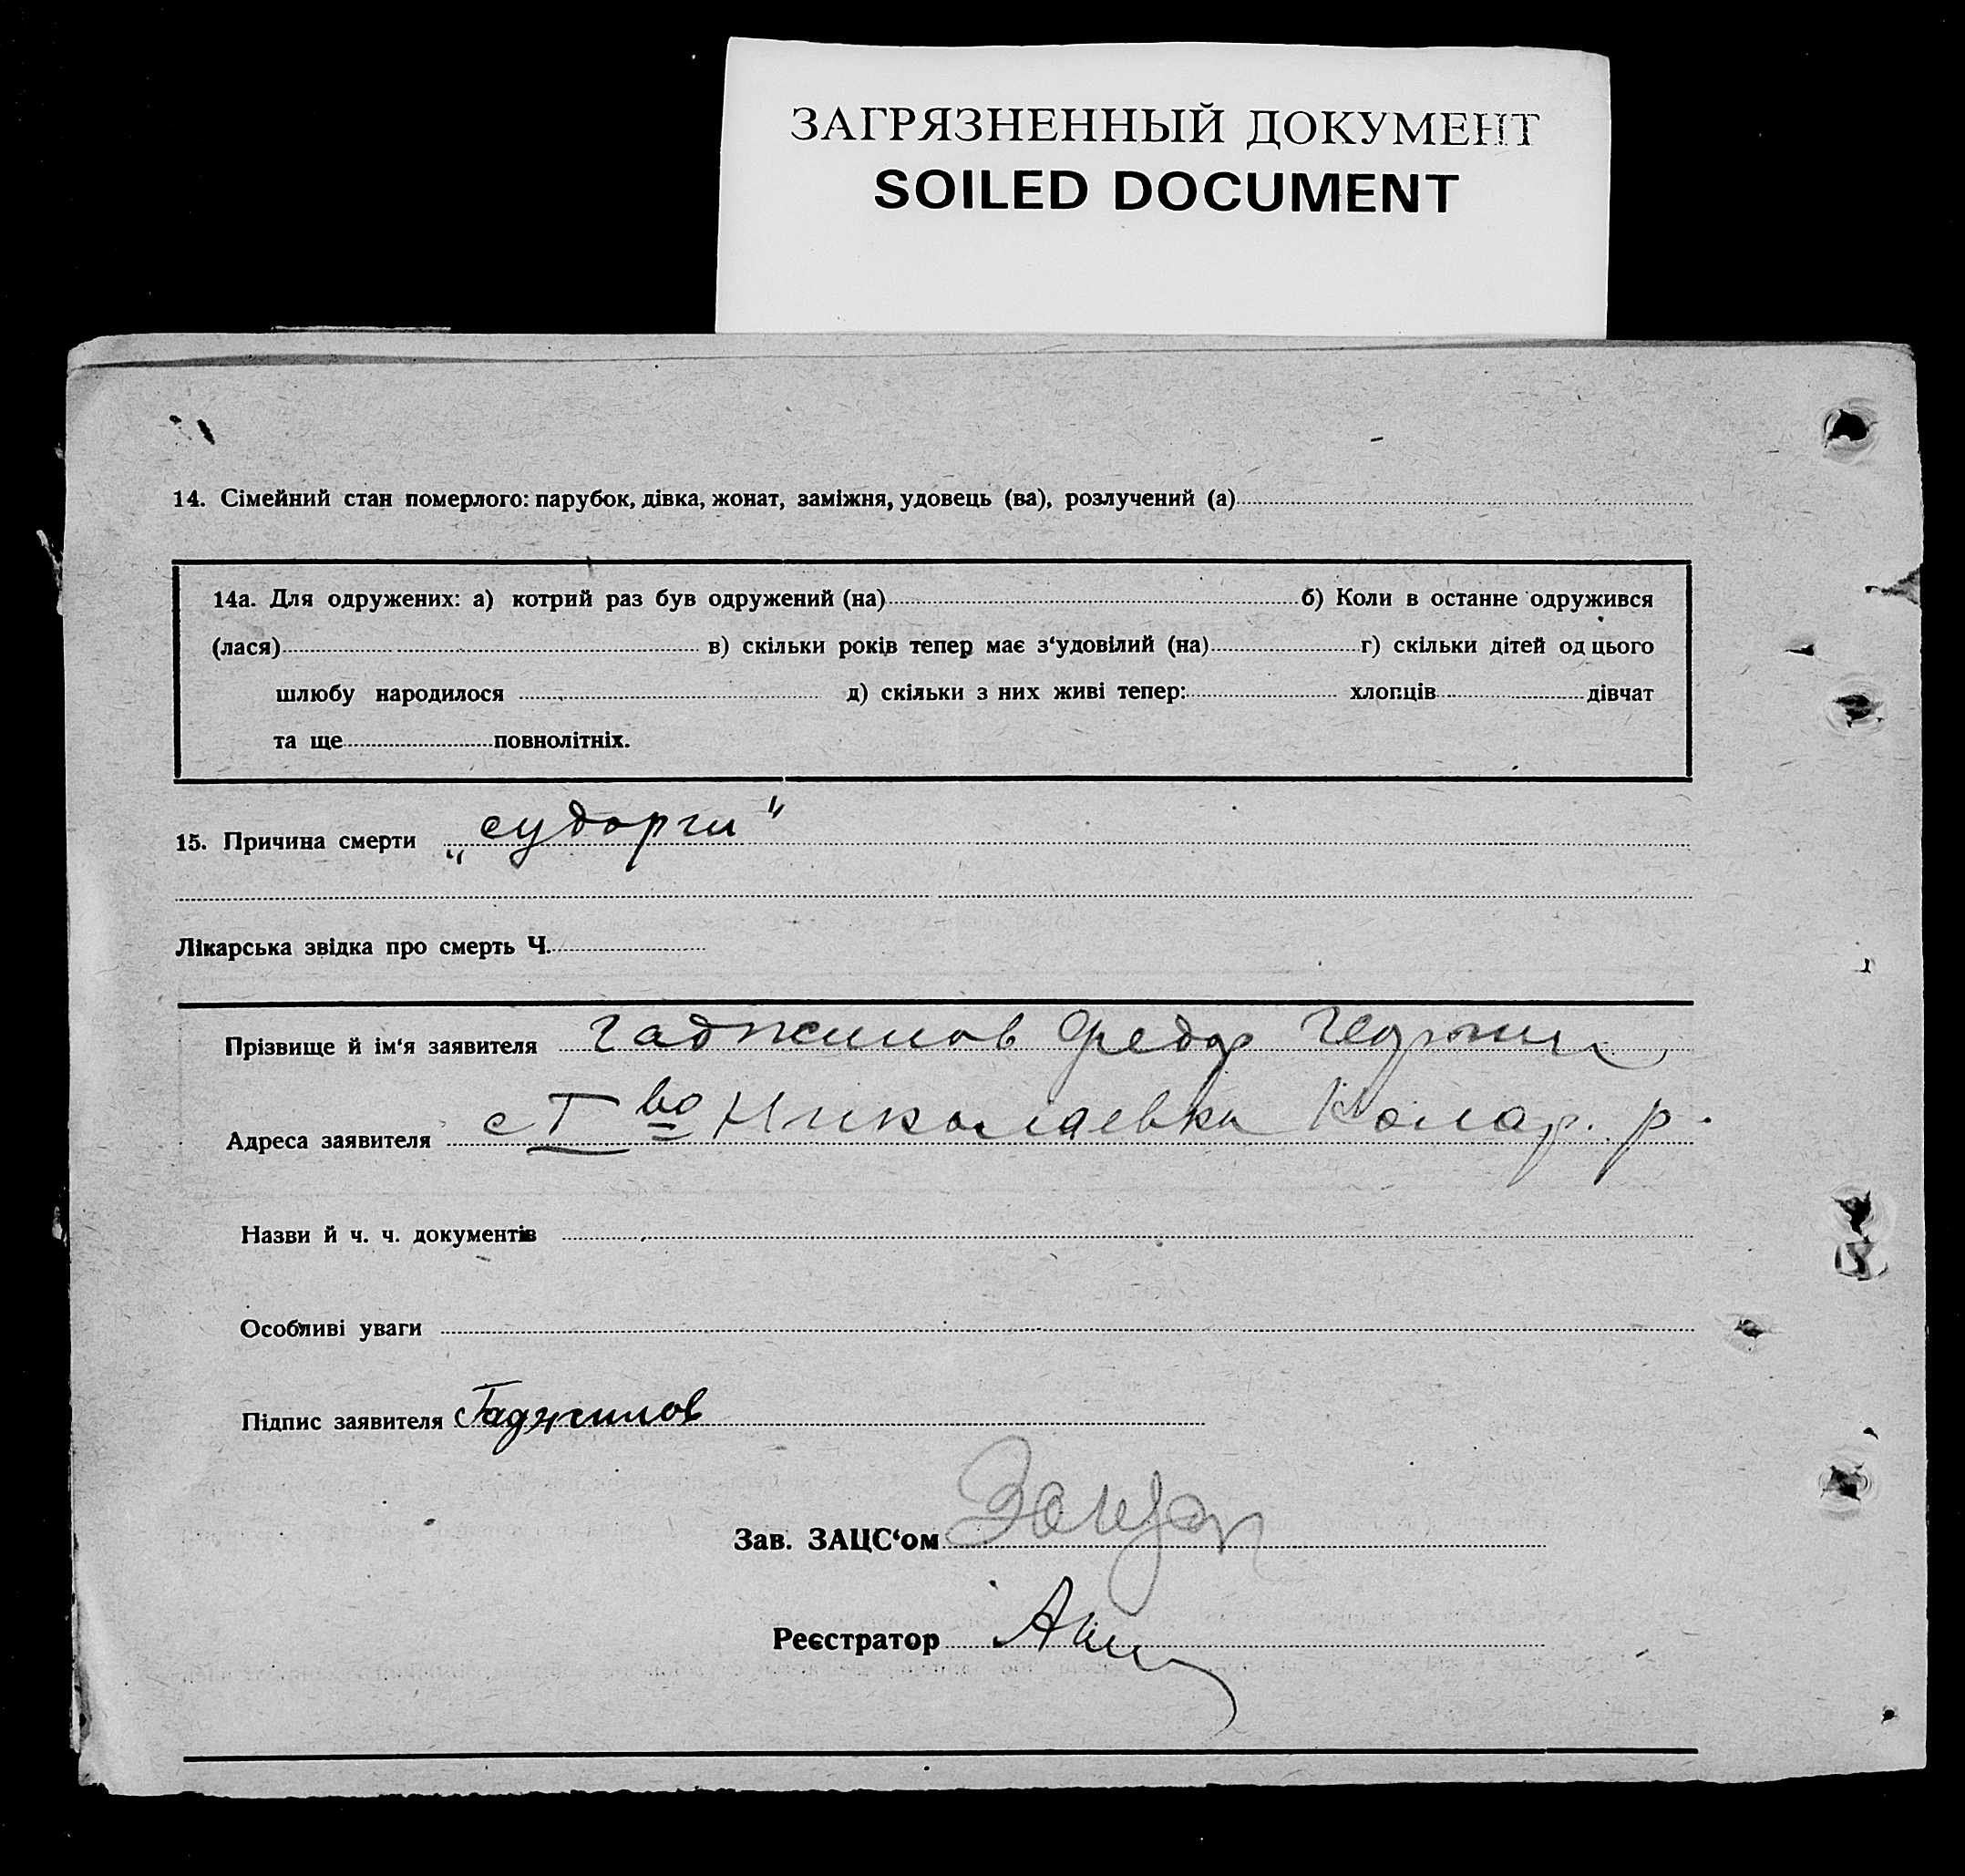 ЗАГРЯЗНЕННЫЙ ДОКУМЕНТ
SOILED DOCUMENT
14. Сімейний стан померлого: парубок, дівка, жонат, заміжня, удовець (ва), розлучений (а)
14а. Для одружених: а) котрий раз був одружений (на) б) Коли в останне одружився
(лася) в) скільки років тепер має з‘удовілий (на) г) скільки дітей од цього
шлюбу народилося д) скільки з них живі тепер: хлопців дівчат
та ще повнолітніх.
15. Причина смерти „судорги"
Лікарська звідка про смерть Ч.
Прізвище й ім‘я заявителя Гаджинов Федор
Адреса заявителя с I во Николаевка р.
Назви й ч. ч. документів
Особливі уваги
Підпис заявителя Гаджинов
Зав. ЗАЦС‘ом
Реєстратор